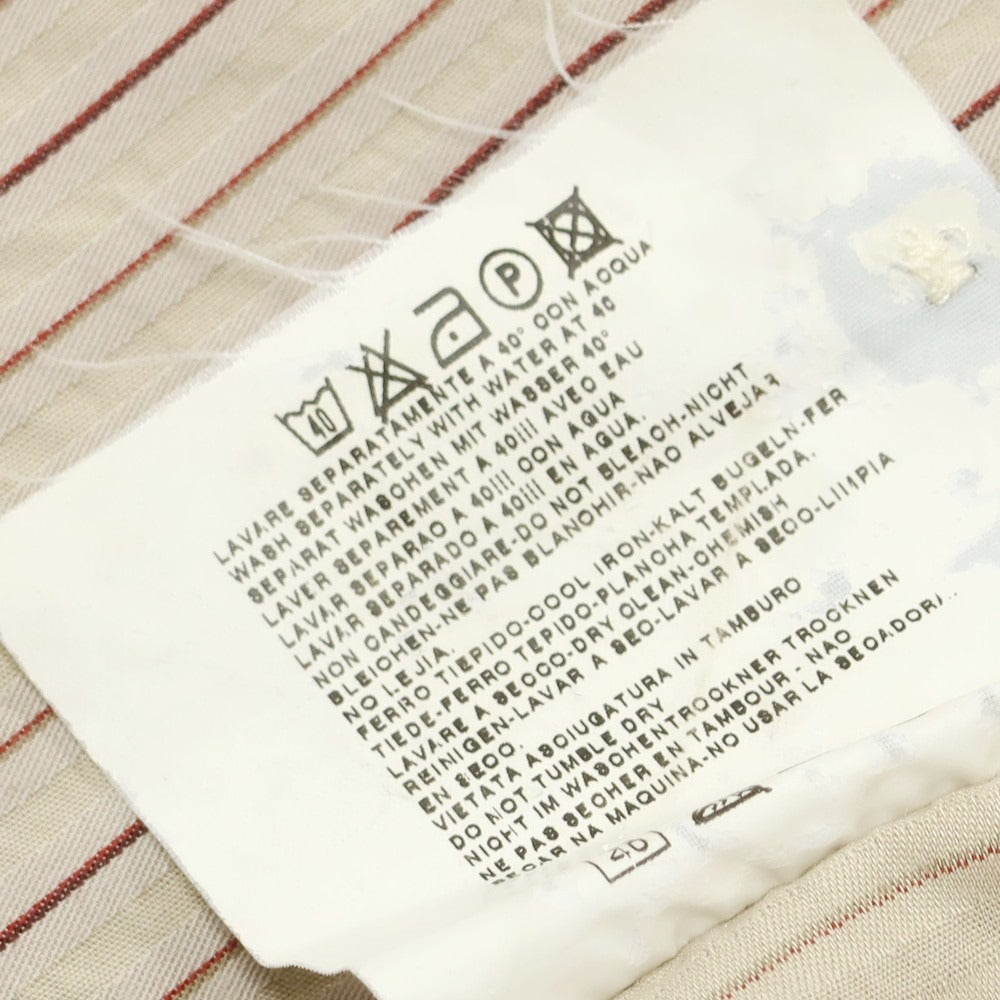 40 P
LAVARE SEPARATAMENTE A 40° CON ACQUA
WASH SEPARATELY WITH WATER AT 40
SEPARAT WASCHEN MIT WASSER 40°
LAVER SEPAREMENT A 40!!! AVEC EAU
LAVAR SEPARAO A 40!!! CON AGUA
LAVAR SEPARADO A 40!!! EN AGUA.
NON CANDEGGIARE-DO NOT BLEACH-NICHT
BLEICHEN-NE PAS BLANOHIR-NAO ALVEJAR
NO LEJIA.
FERRO TIEPIDO-COOL IRON-KALT BUGELN-FER
TIEDE-FERRO TEPIDO-PLANCHA TEMPLADA.
LAVARE A SECCO-DRY CLEAN-CHEMISH
REINIGEN-LAVAR A SEC-LAVAR A SECO-LI!!PIA
EN SECO.
VIETATA ASCIUGATURA IN TAMBURO
DO NOT TUMBLE DRY
NICHT IM WASCHENTROCKNER TROCKNEN
NE PAS SECHER EN TAMBOUR - NAO
SECAR NA MAQUINA-NO USAR LA SECADOR
40